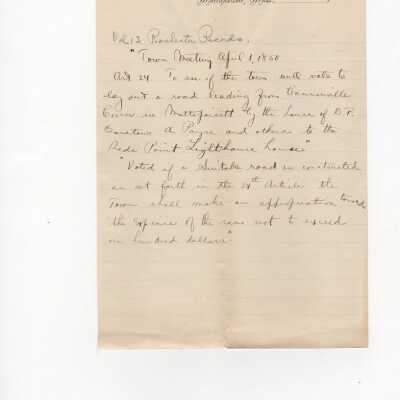 Mattapoisett, Mass.
Vol 12 Rochester Records.
"Town Meeting April 1, 1850
Art 24. To see if the town will vote to
lay out a road leading from Cannonville
Corner in Mattapoisett by the house of D. P.
A Payne and others to the
Neds Point Lighthouse house"
"Voted if a suitable road is constructed
as set forth in the 24th Article the
Town shall make an appropriation toward
the expense of the same not to exceed
one hundred dollars"